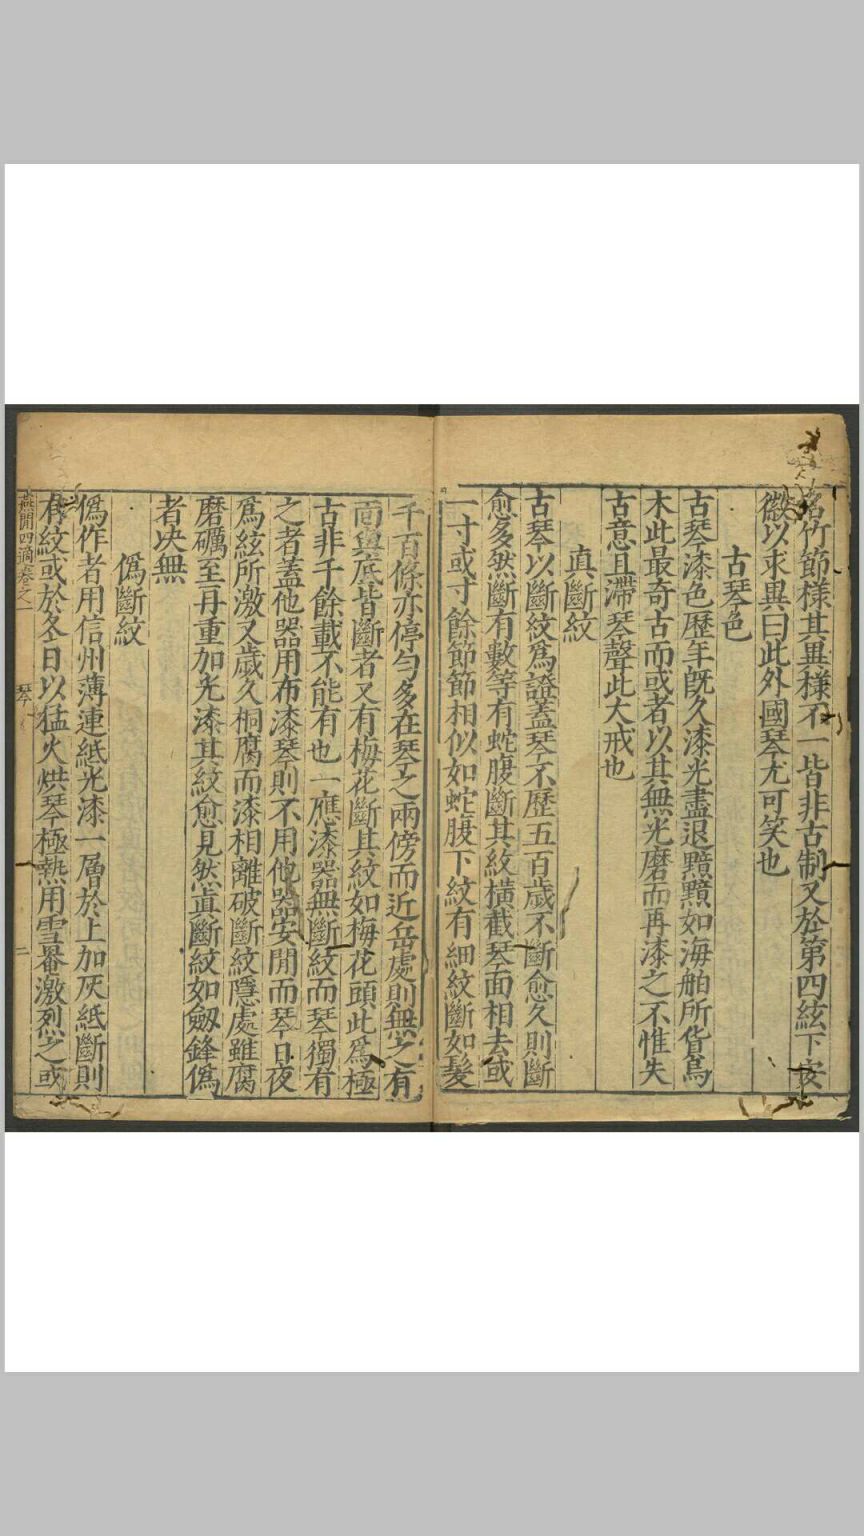 名竹節樣其異樣不一皆非古制又於第四絃下安
徽以求異曰此外國琴尤可笑也
古琴色
古琴漆色歷年既久漆光盡退黯黯如海舶所貨烏
木此最奇古而或者以其無光磨而再漆之不惟失
古意且滯琴聲此大戒也
真斷紋
古琴以斷紋為證蓋琴不歷五百歲不斷愈久則斷
愈多然斷有數等有蛇腹斷其紋橫截琴面相去或
一寸或寸餘節節相似如蛇腹下紋有細紋斷如髮
千百條亦停勻多在琴之兩傍而近岳處則無之有
面與底皆斷者又有梅花斷其紋如梅花頭此為極
古非千餘載不能有也一應漆器無斷紋而琴獨有
之者蓋他器用布漆琴則不用他器安閒而琴日夜
為絃所激又歲久桐腐而漆相離破斷紋隱處雖腐
磨礪至再重加光漆其紋愈見然真斷紋如劒鋒偽
者決無
偽斷紋
偽作者用信州薄連紙光漆一層於上加灰紙斷則
有紋或於冬日以猛火烘琴極熱用雪罨激烈之或
燕閒四適卷之一 琴 二